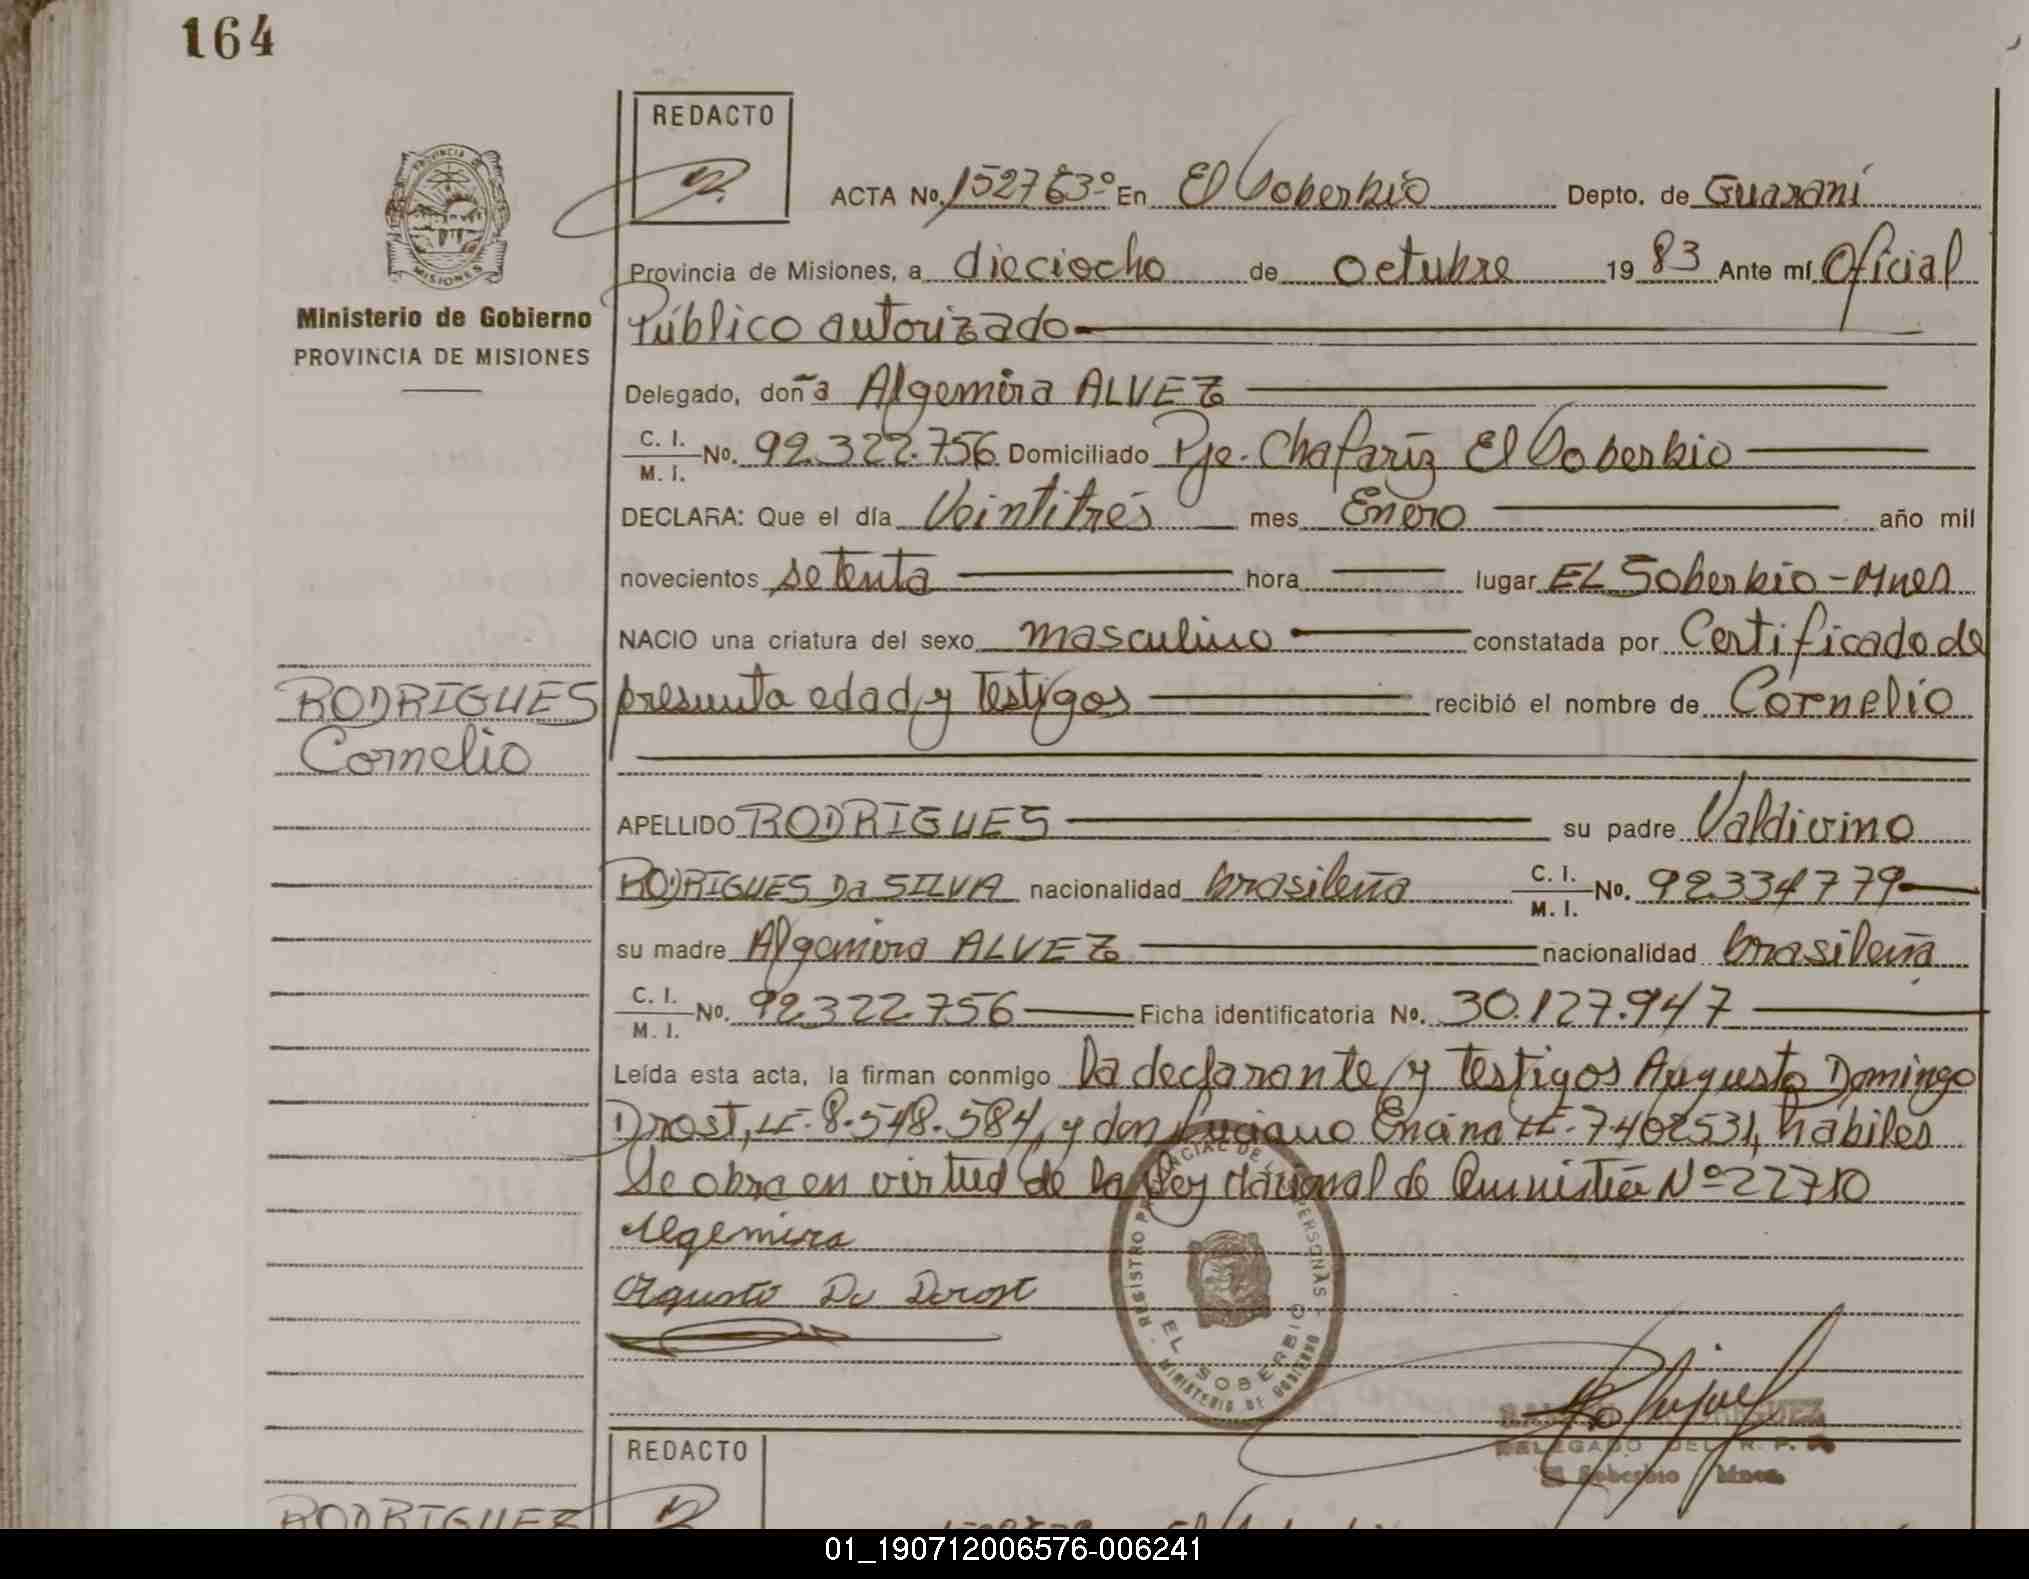 164
REDACTO
ACTA No. 152763º En El Soberbio Depto. de Guaraní
Provincia de Misiones, a dieciocho de octubre 1983 Ante mí Oficial
Público autorizado
Ministerio de Gobierno
PROVINCIA DE MISIONES
Delegado, doña Algemira ALVEZ
C. I. M. I. No. 92.322.756 Domiciliado Pje. Chafariz El Soberbio
DECLARA: Que el día Veintitrés mes Enero año mil
novecientos setenta hora lugar EL Soberbio-Mnes
NACIO una criatura del sexo masculino constatada por Certificado de
presunta edad y Testigos recibió el nombre de Cornelio
RODRIGUES
Cornelio
APELLIDO RODRIGUES su padre Valdivino
RODRIGUES Da SILVA nacionalidad brasileña C. I. M. I. No. 92334779
su madre Algemira ALVEZ nacionalidad brasileña
C. I. M. I. No. 92.322.756 Ficha identificatoria No. 30.127.947
Leída esta acta, la firman conmigo La declarante y testigos Augusto Domingo
Drost, LE. 8.548.584, y don Luciano Encina LE. 7.402531, habiles
Se obra en virtud de la Ley Nacional de Amnistía Nº 22710
Algemira
Agusto Do Drost
REGISTRO PROVINCIAL DE LAS PERSONAS
EL SOBERBIO
MINISTERIO DE GOBIERNO
DELEGADO DEL R. P. P.
El Soberbio Mnes.
REDACTO
RODRIGUEZ
01_190712006576-006241